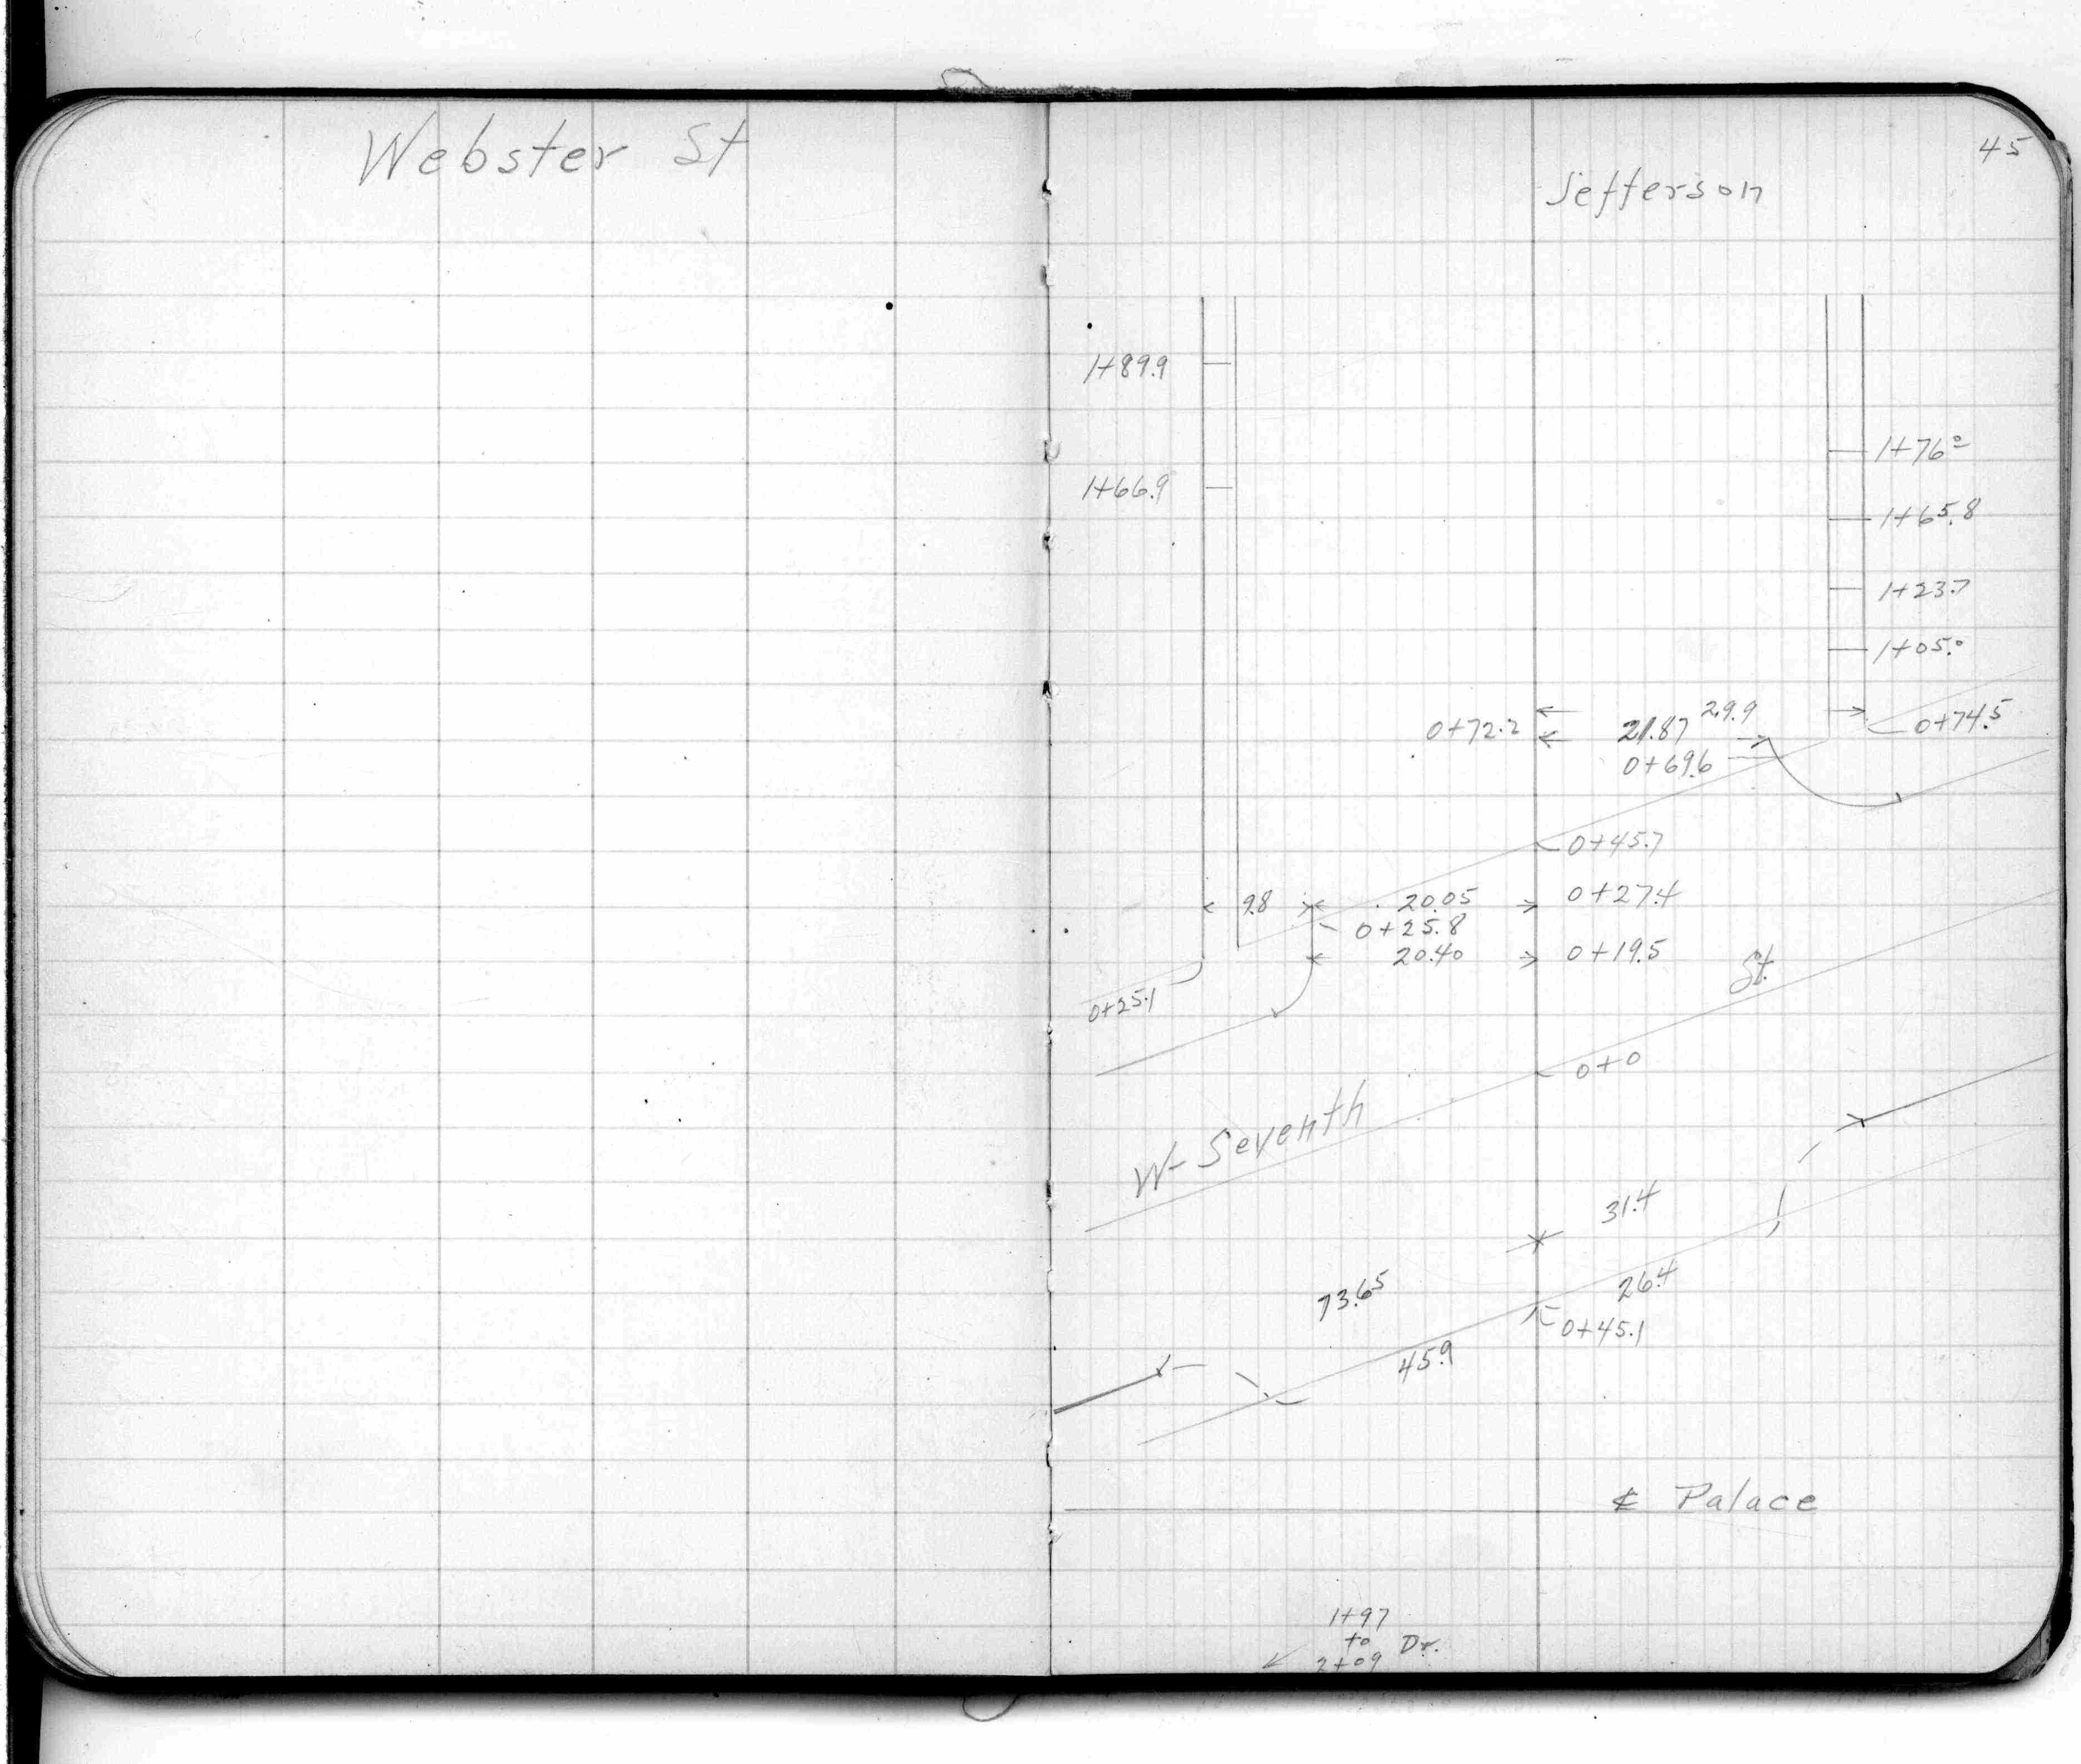 Webster St
45
Jefferson
1+89.9
1+76º
1+66.9
1+65.8
1+23.7
1+05.º
29.9
0+72.2 21.87 0+74.5
0+69.6
0+45.7
9.8 20.05 0+27.4
0+25.8
20.40 0+19.5
St.
0+25.1
0+0
W- Seventh
31.4
73.65 26.4
0+45.1
45.9
℄ Palace
1+97
to Dr.
2+09